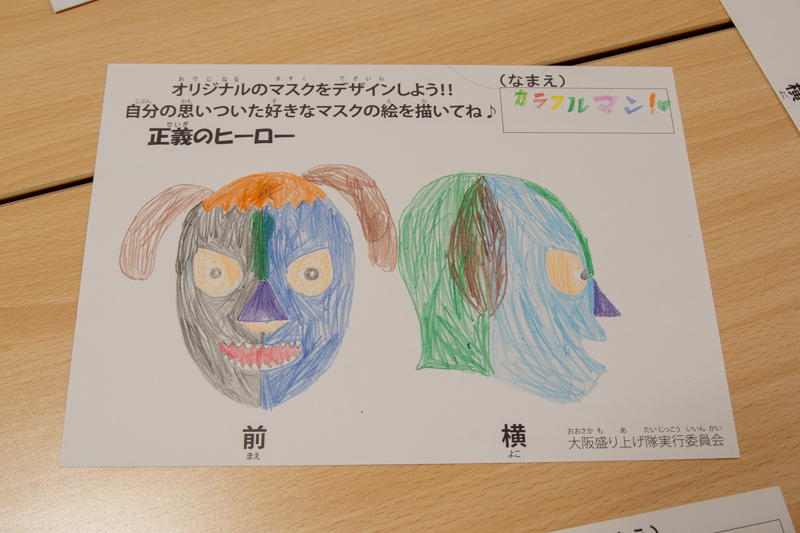 おりじなる ますく でざいん
オリジナルのマスクをデザインしよう!!
じぶん おも す え か
自分の思いついた好きなマスクの絵を描いてね♪
せいぎ
正義のヒーロー
(なまえ)
カラフルマン!
前
まえ
横
よこ
おおさか も あ たい じっこう いいん かい
大阪盛り上げ隊実行委員会
横
よこ